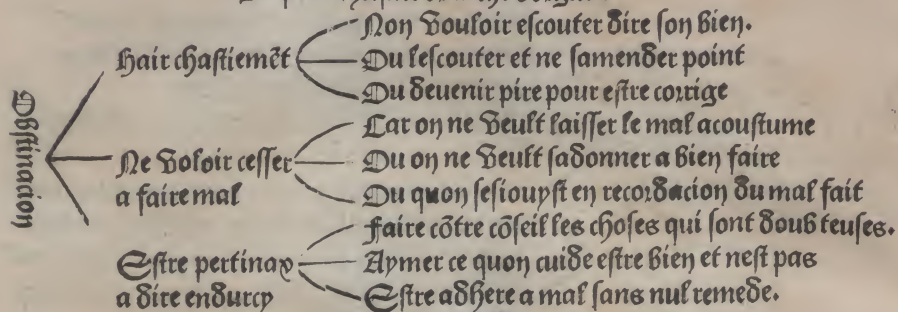 Obstinacion
Hair chastiemēt
Non vouloir escouter dire son bien.
Ou lescouter et ne samender point
Ou deuenir pire pour estre corrige
Ne voloir cesser
a faire mal
Car on ne veult laisser le mal acoustume
Ou on ne veult sadonner a bien faire
Ou quon sesiouyst en recordacion du mal fait
Estre pertinax
a dire endurcy
Faire cōtre cōseil les choses qui sont doubteuses.
Aymer ce quon cuide estre bien et nest pas
Estre adhere a mal sans nul remede.